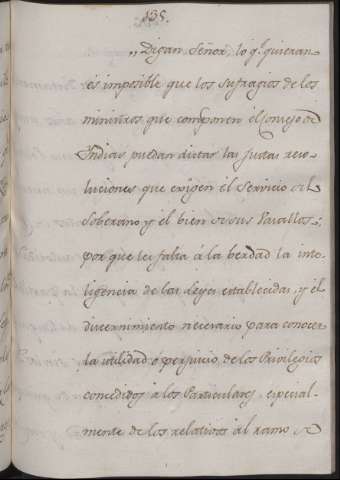 135.
„Digan, Señor, lo q.e quieran
es imposible que los sufragios de los
ministros que componen el Consejo de
Indias puedan dictar las justas reso-
luciones que exigen el Servicio del
Soberano y el bien de sus Vasallos;
porque les falta á la berdad la inte-
ligencia de las Leyes establecidas, y el
discernimiento necesario para conocer
la utilidad o perjuicio de los Privilegios
concedidos á los Particulares, especial-
mente de los relativos al ramo de